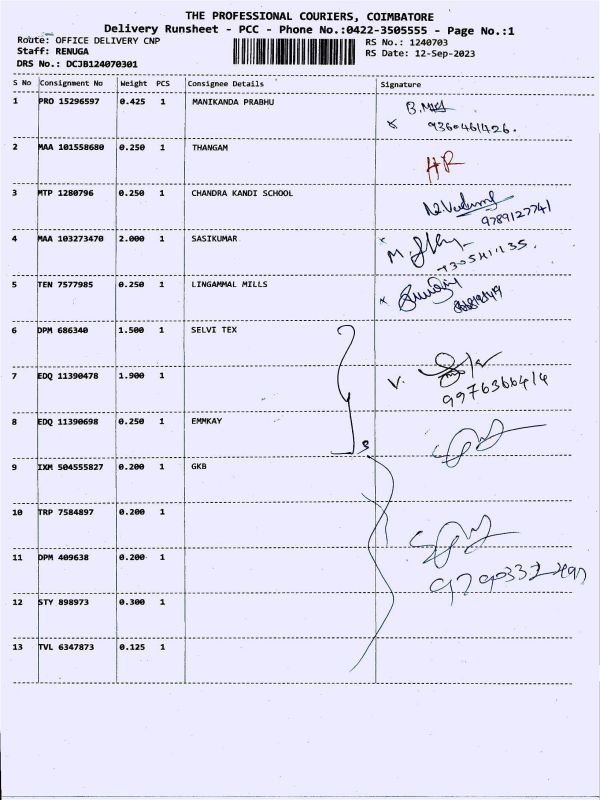 THE PROFESSIONAL COURIERS, COIMBATORE
Delivery Runsheet - PCC - Phone No.:0422-3505555 - Page No.:1
Route: OFFICE DELIVERY CNP RS No.: 1240703
Staff: RENUGA RS Date: 12-Sep-2023
DRS No.: DCJB124070301
S No Consignment No Weight PCS Consignee Details Signature
1 PRO 15296597 0.425 1 MANIKANDA PRABHU
9360461426.
2 MAA 101558680 0.250 1 THANGAM
HR
3 MTP 1280796 0.250 1 CHANDRA KANDI SCHOOL
9789127741
4 MAA 103273470 2.000 1 SASIKUMAR
5 TEN 7577985 0.250 1 LINGAMMAL MILLS
6 DPM 686340 1.500 1 SELVI TEX
7 EDQ 11390478 1.900 1
V.
9976366414
8 EDQ 11390698 0.250 1 EMMKAY
3
9 IXM 504555827 0.200 1 GKB
10 TRP 7584897 0.200 1
11 DPM 409638 0.200 1
12 STY 898973 0.300 1
13 TVL 6347873 0.125 1